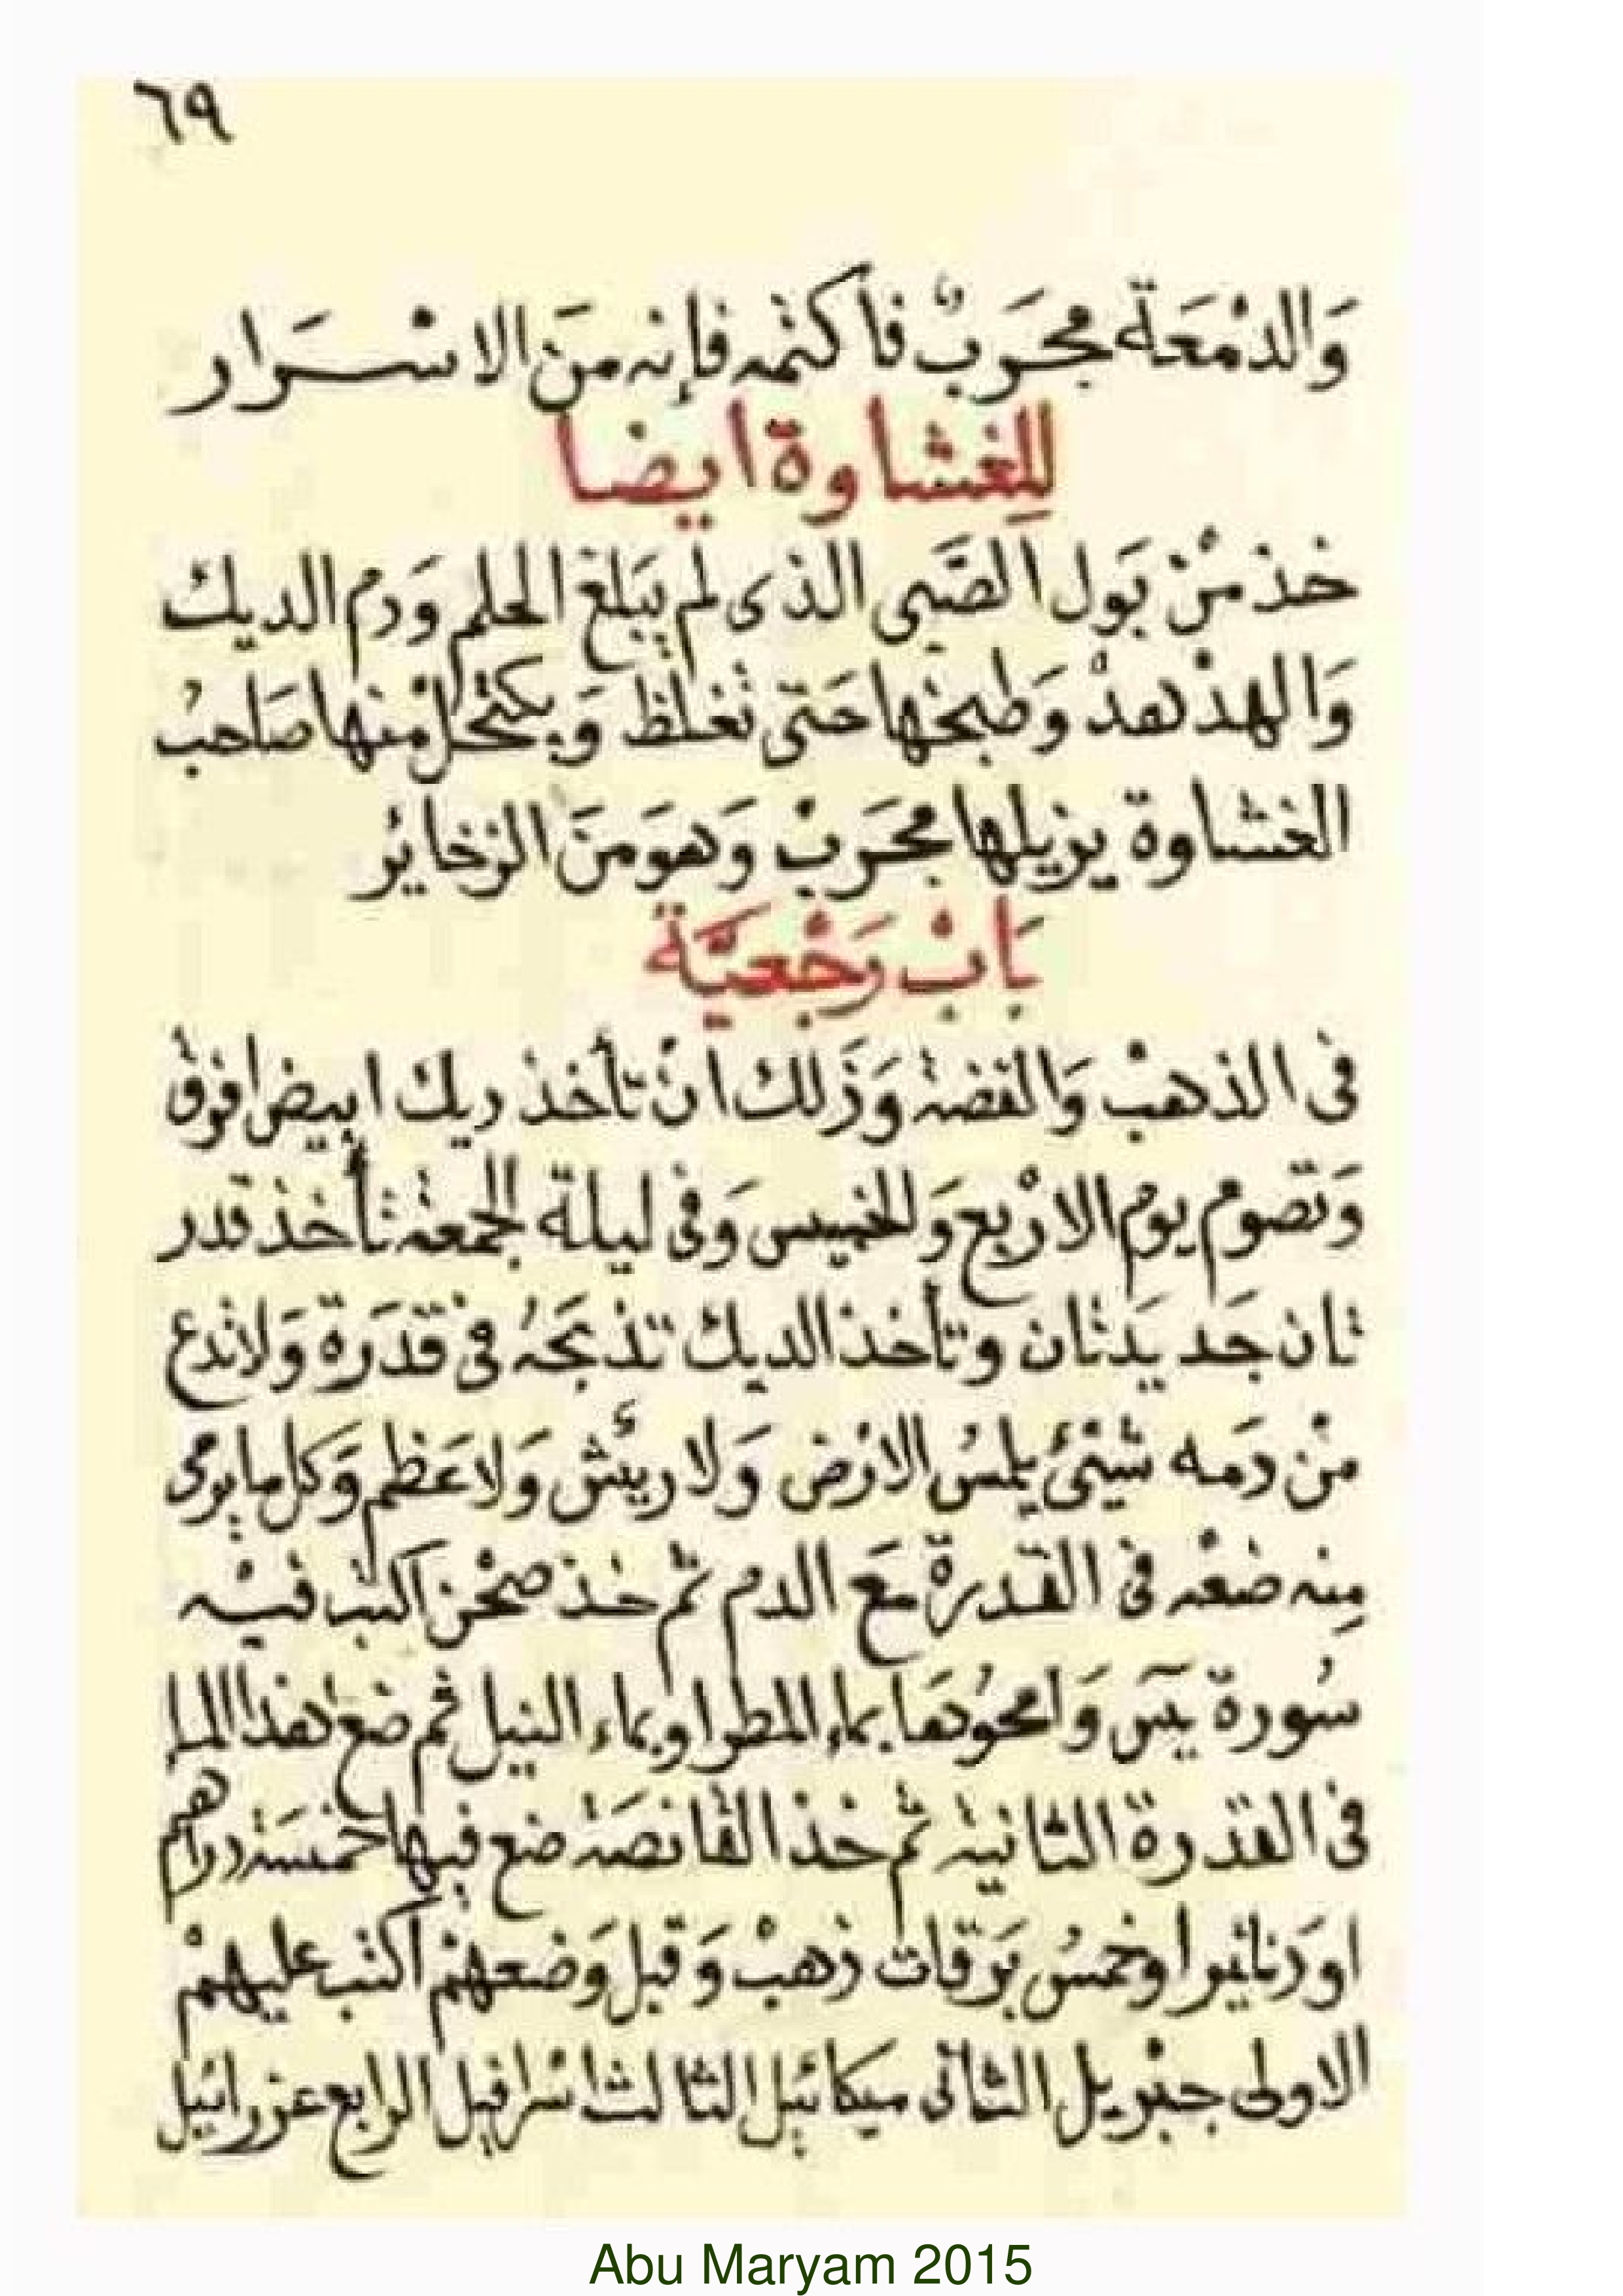 ٦٩
وَالدْمْعَة مجَربْ فأكتمه فإنه منَ الاسْرَار
للِغشاوة ايضا
خذ منْ بَول الصَّبى الذى لم يَبلغ الحلم وَدم الديك
وَالهدْهدْ وَطبخها حَتى تغلظ وَيكتحلْ منها صَاحبُ
الغشاوة يزيلها مجَربْ وَهوَ منَ الزخايْر
بَابْ رَجْعيَّة
فى الذهبْ وَالفضة وَزَلك انْ تأخذ ديك ابيض افرقْ
وَتصوم يوم الارْبع وَالخميس وَفى ليلة الجمعه تأخذ قدر
تان جَديدَتان وتأخذ الديك تذبحَهُ فى قدَرة وَلاتدع
منْ دَمه شيْئ يلمسُ الارْض وَلا ريَش وَلاعَظم وَكل مايرمى
مِنه ضعْه فى القدرة مَع الدم ثم خذ صحْن اكتب فيْه
سُورة يسَ وَامحوُهَا بماء المطر اوبماء النيل ثم ضع هذا الماء
فى القدرة الثانية ثم خذ القانصَة ضع فيها خمسَة دراهم
اودَنانير اوخمسُ بَرَقات ذهبْ وَقبل وَضعهمْ اكتب عليهمْ
الاولى جبْريل الثانى ميكائيل الثالث اسْرافيل الرابع عزرائيل
Abu Maryam 2015